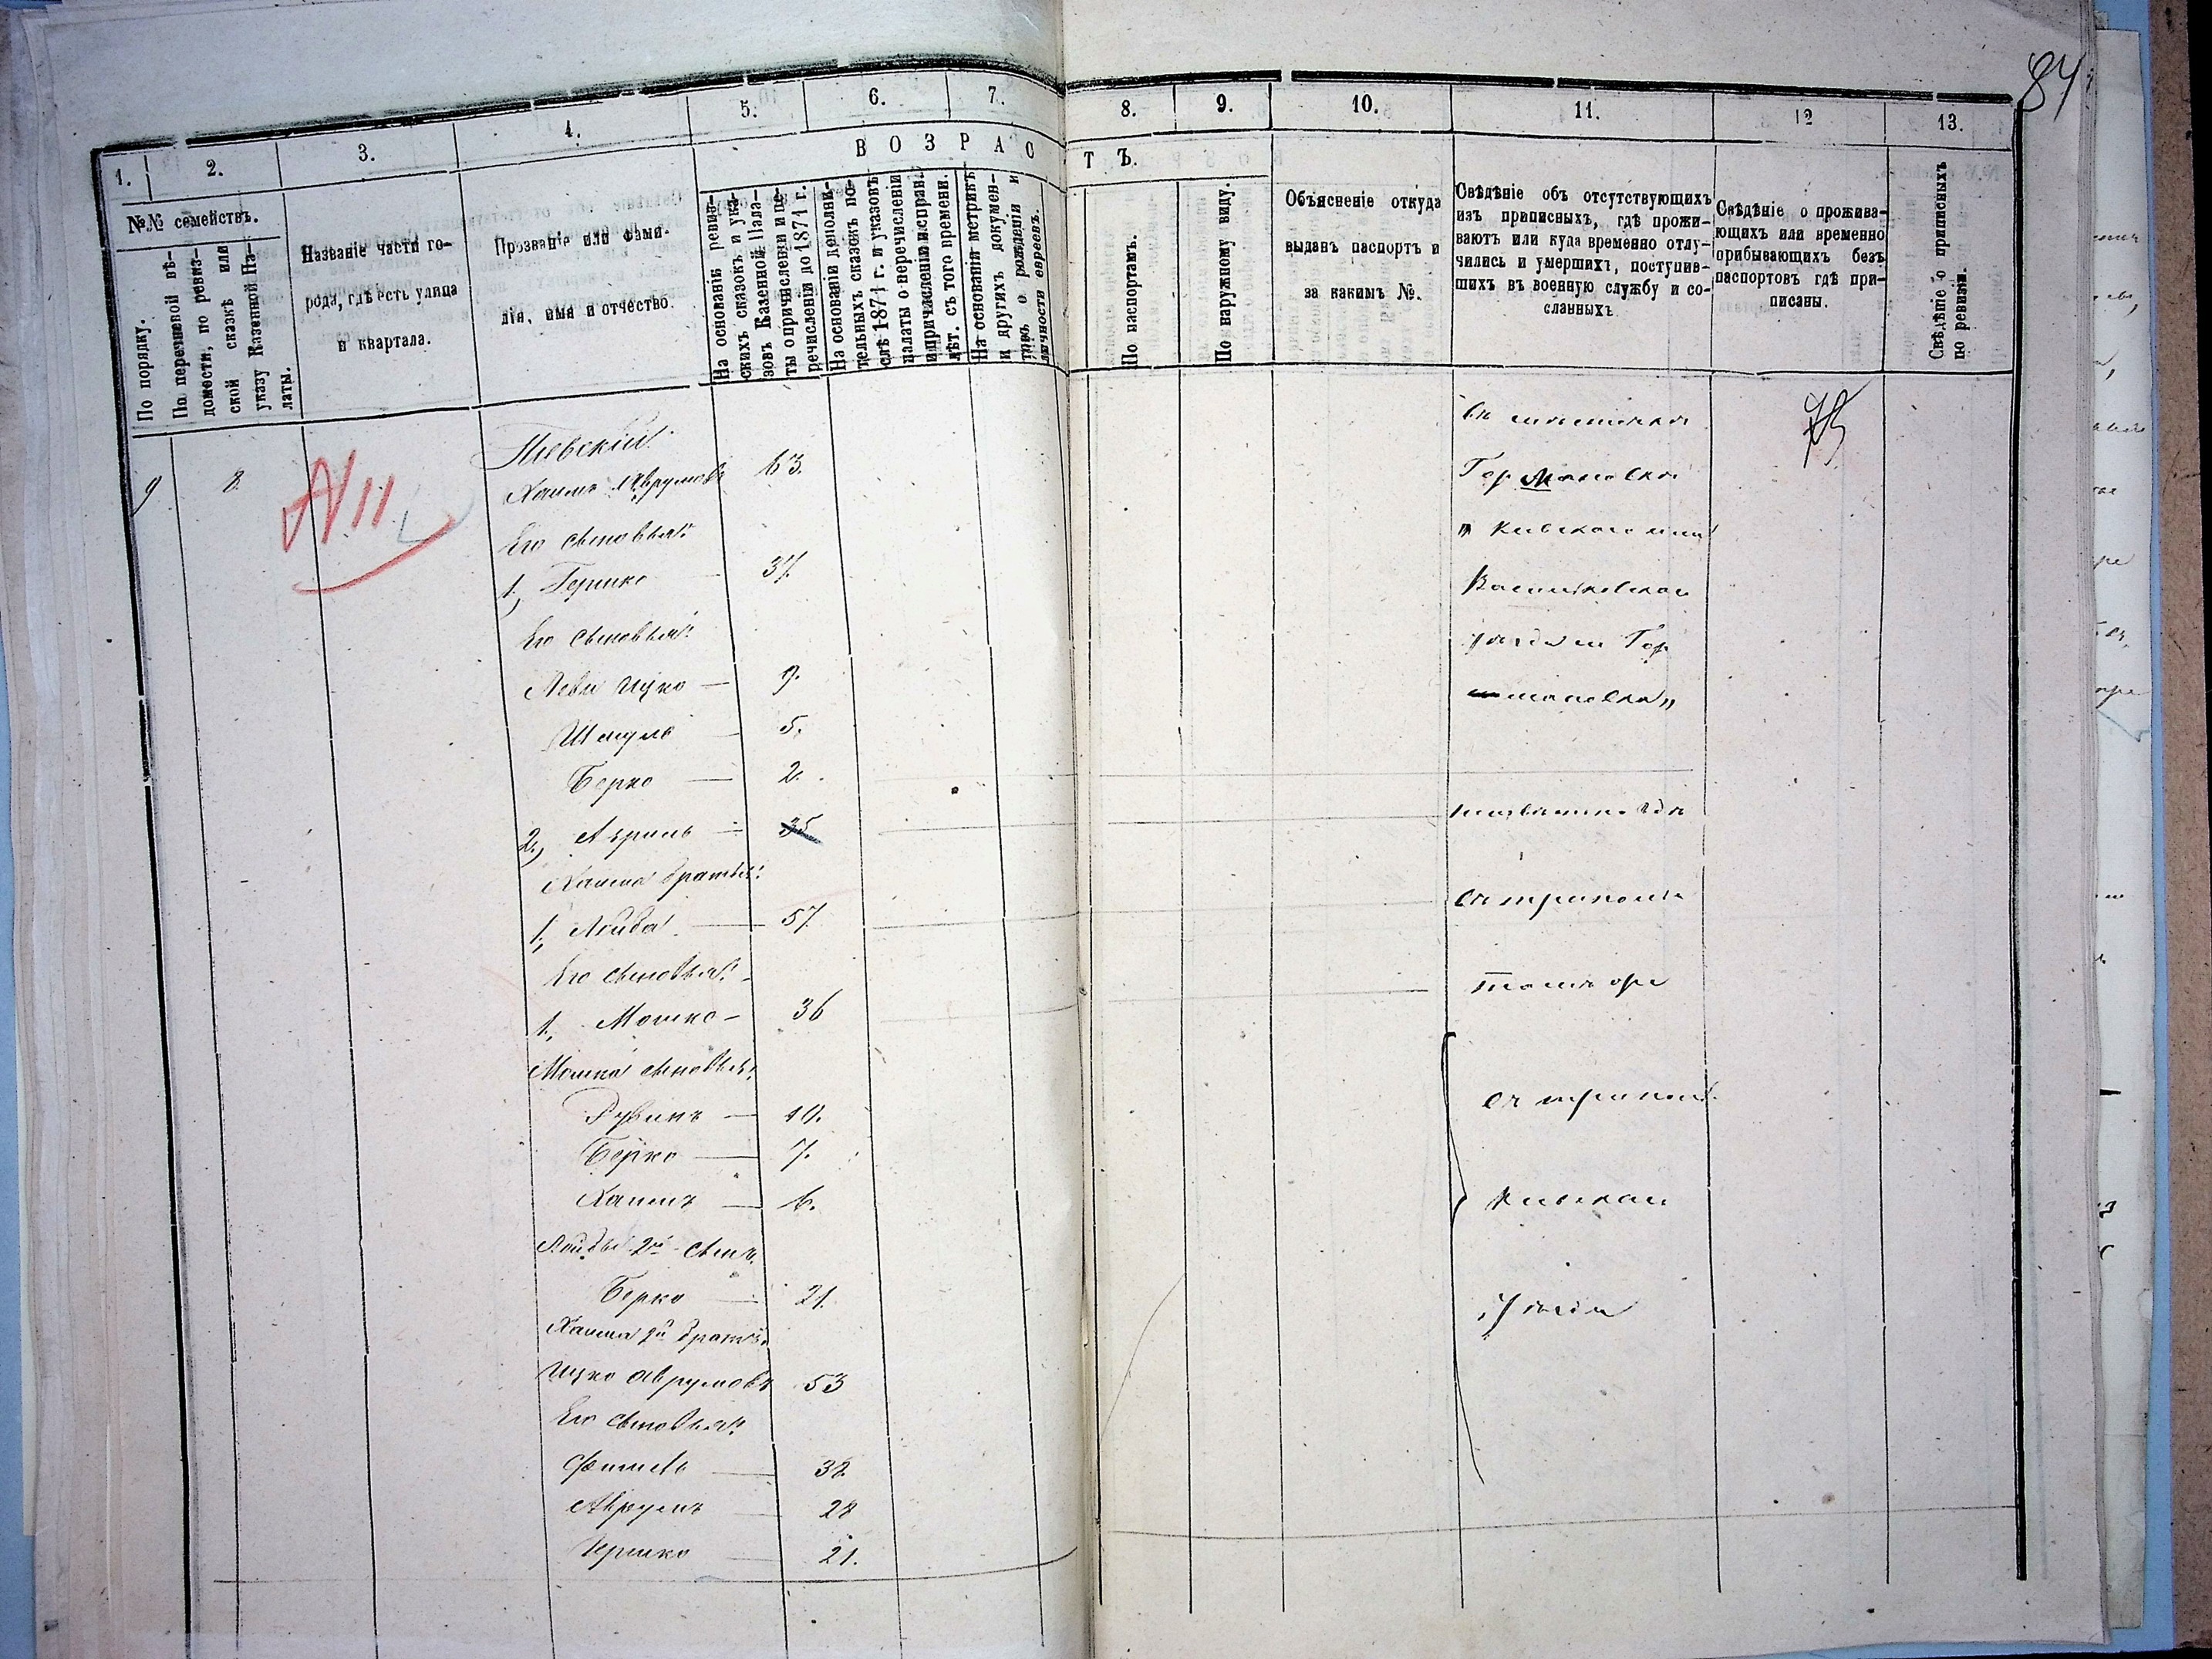 84
1.
2.
3.
4.
5.
6.
7.
8.
9.
10.
11.
12
13.
В О З Р А С Т Ъ.
№№ семействъ.
По порядку.
По перечневой вѣ-
домости, по ревиз-
ской сказкѣ или
указу Казенной Па-
латы.
Названіе части го-
рода, гдѣ есть улица
и квартала.
Прозваніе или фами-
лія, имя и отчество.
На основаніи ревиз-
скихъ сказокъ и ука-
зовъ Казенной Пала-
ты о причисленіи и пе-
речисленіи до 1871 г.
На основаніи дополни-
тельныхъ сказокъ по-
слѣ 1871 г. и указовъ
палаты о перечисленіи
и причисленіи и исправ.
лѣт. съ того времени.
На основаніи метрикъ
и другихъ докумен-
товъ о рожденіи и
личности евреевъ.
По паспортамъ.
По наружному виду.
Объясненіе откуда
выданъ паспортъ и
за какимъ №.
Свѣдѣніе объ отсутствующихъ
изъ приписныхъ, гдѣ прожи-
ваютъ или куда временно отлу-
чились и умершихъ, поступив-
шихъ въ военную службу и со-
сланныхъ.
Свѣдѣніе о прожива-
ющихъ или временно
прибывающихъ безъ
паспортовъ гдѣ при-
писаны.
Свѣдѣніе о приписныхъ
по ревизіи.
9 8
Хаимъ Аврумовъ 63.
Его сыновья:
1, Гершко 37.
Его сыновья:
Леви Ицко — 9.
Шмуль — 5.
Берко — 2.
2, Азриль — 35
Хаима братья:
1, Лейба — 57
Его сыновья:
1, Мошко — 36
Мошка сыновья:
Рувинъ — 10.
Берко — 7.
Хаимъ — 6.
Лейбы 2й сынъ
Берко — 21.
Хаима 2й братъ
Ицко Аврумовъ 53
Его сыновья:
Фишель — 32
Аврумъ 28
Гершко — 21.
въ мѣстечкѣ
Германовкѣ
Кіевской
Васильковскаго
уѣзда Гер
мановка"
съ триполя
тоже
съ триполя
Кіевскаго
Уѣзда